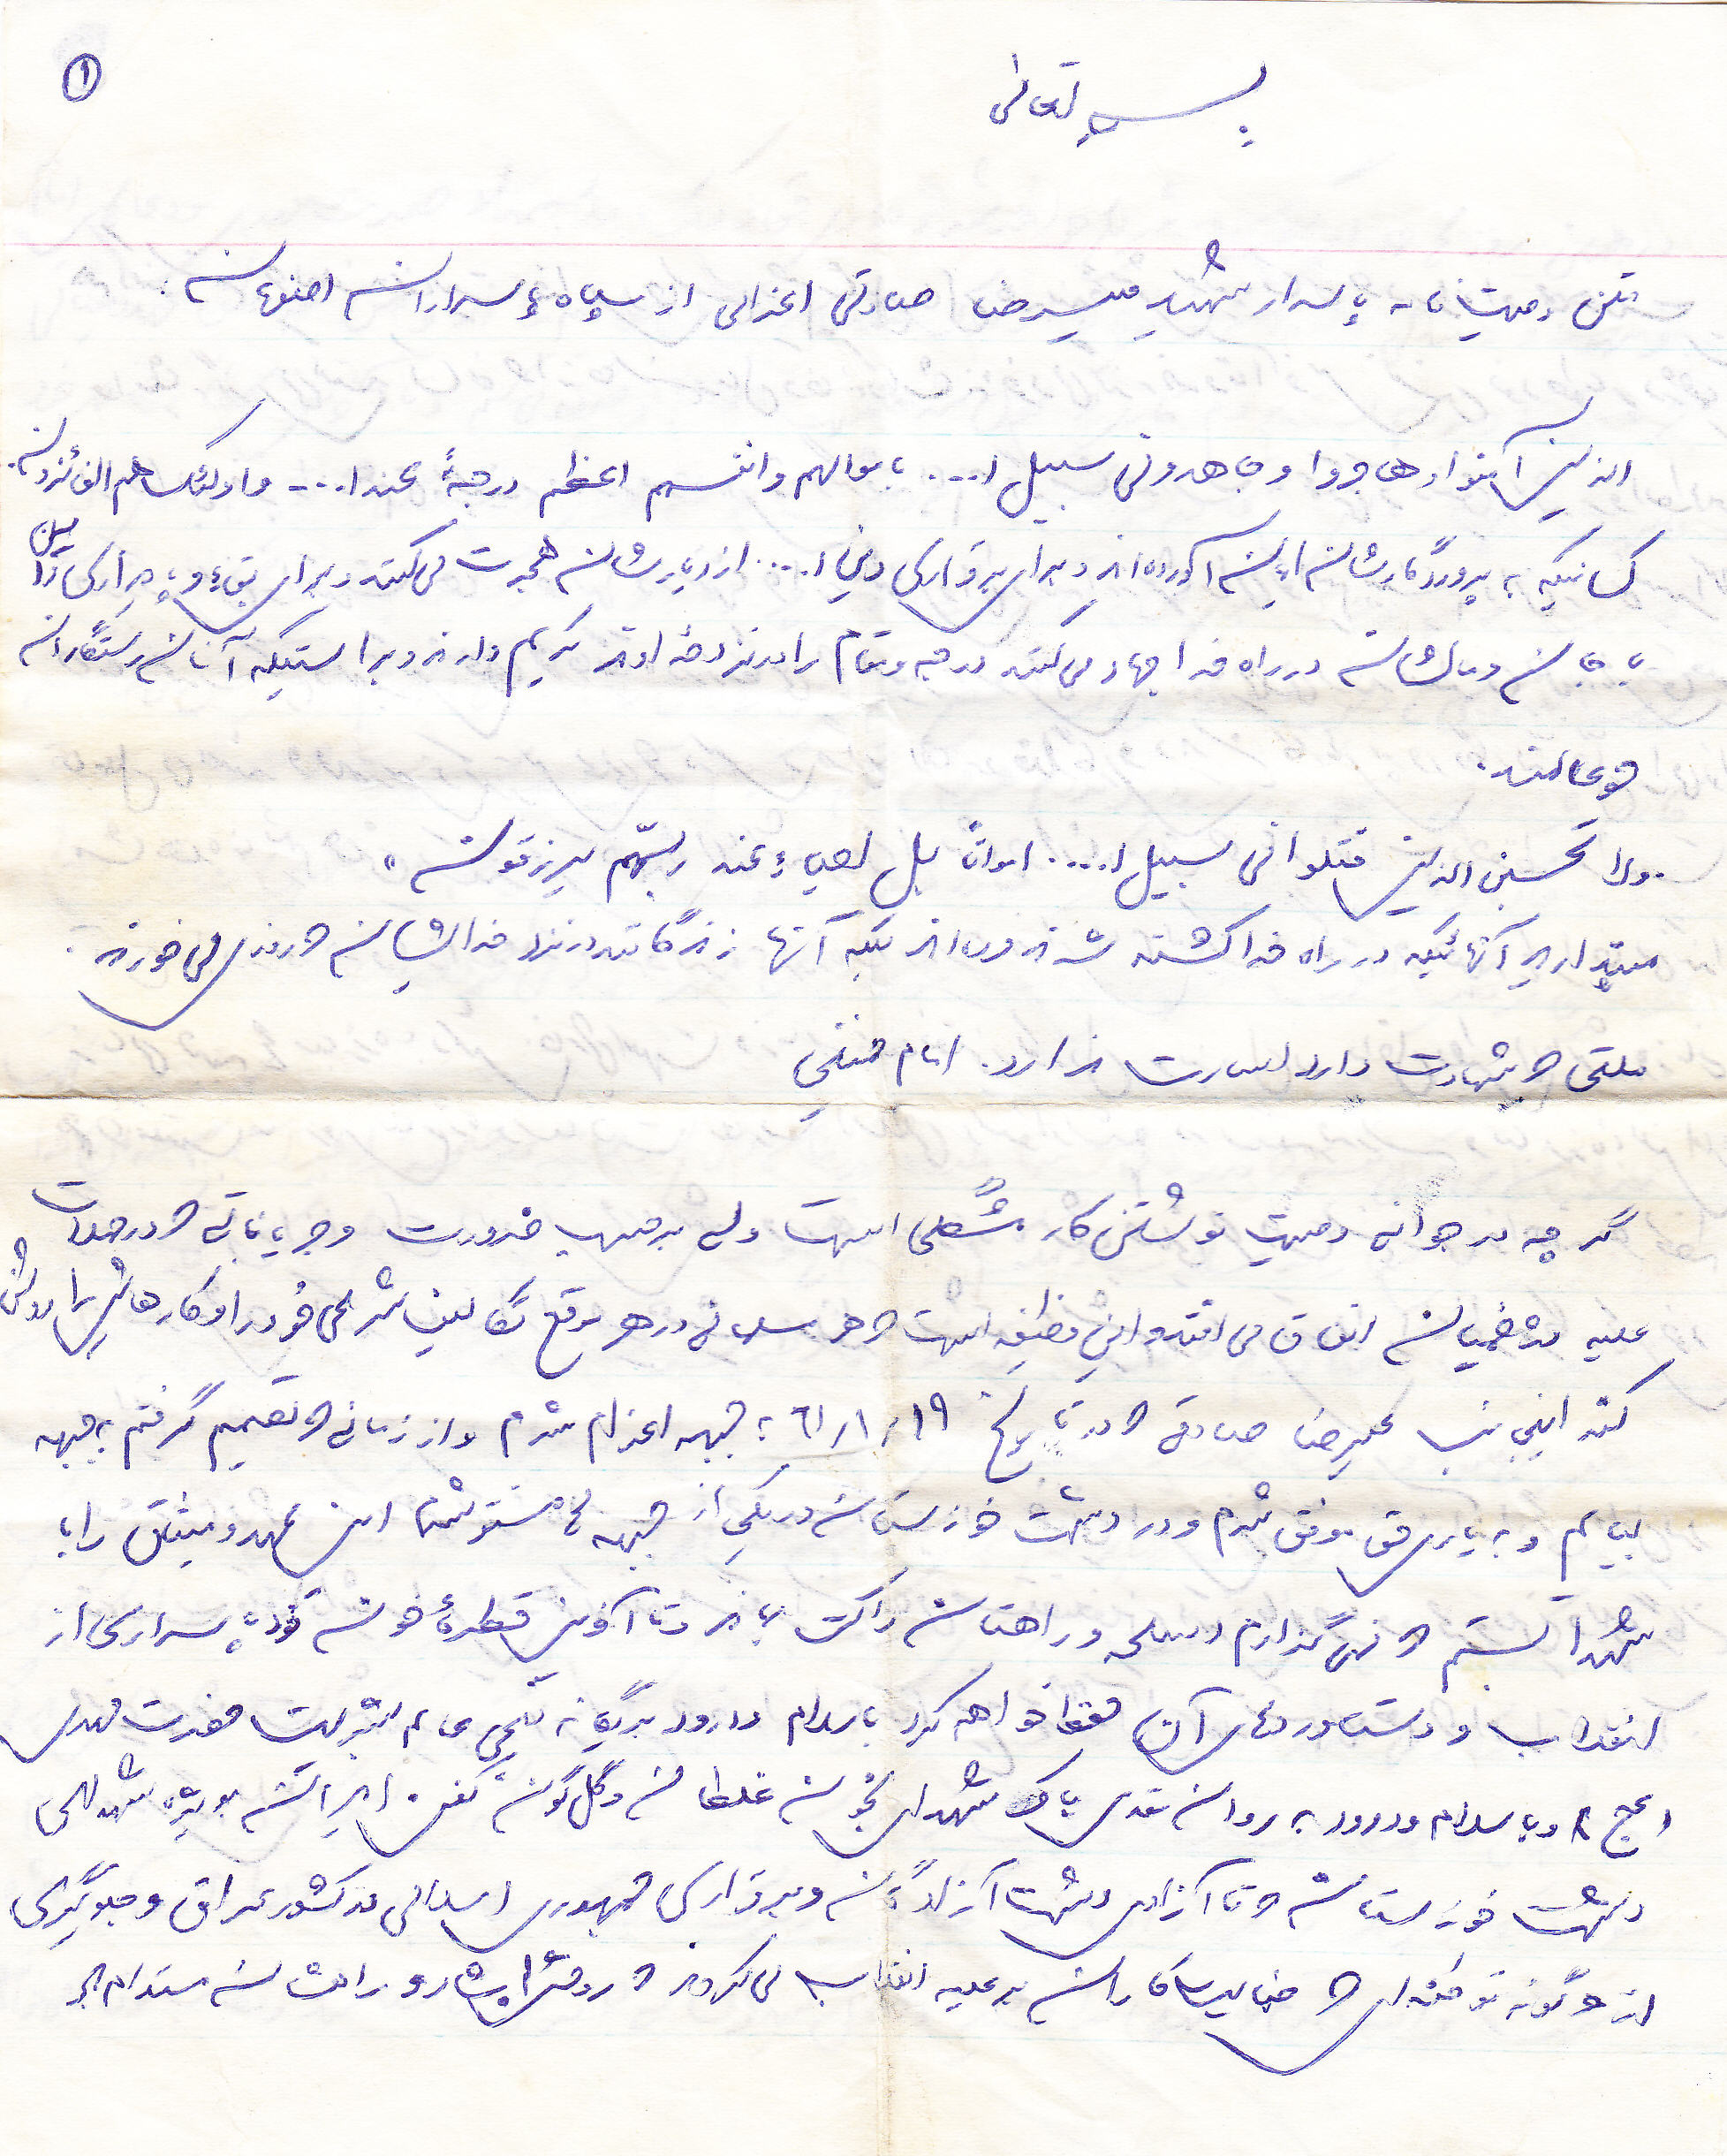 ۱
بسمه تعالی
متن وصیتنامه پاسدار شهید علیرضا صادقی اعزامی از سپاه پاسداران اصفهان:
الذین آمنوا و هاجروا و جاهدو فی سبیل ا.... باموالهم وانفسهم اعظم درجةً عندا.... و اولئک هم الفائزون.
کسانیکه به پروردگارشان ایمان آورده‌اند و برای برقراری دین ا.... از دیارشان هجرت می‌کنند و برای بقاء و پایداری دین
با جان و مالشان در راه خدا جهاد می‌کنند درجه و مقام را در نزد خداوند کریم دارند و براستیکه آنان رستگاران
دو عالمند.
ولا تحسبن الذین قتلوا فی سبیل ا.... امواتاً بل احیاء عند ربهم یرزقون "
مپندارید آنهائیکه در راه خدا کشته شدند مرده‌اند بلکه آنها زندگانند و نزد خدایشان روزی می‌خورند.
ملتی که شهادت دارد اسارت ندارد. امام خمینی
گر چه در جوانی وصیت نوشتن کار مشگلی است ولی برحسب ضرورت و جریاناتی که در حملات
علیه دشمنان اتفاق می‌افتد و این وظیفه است که هر مسلمانی در هر موقع تکالیف شرعی خود را و کارهایش را روشن
کند اینجانب علیرضا صادقی که در تاریخ ۶۱/۱/۱۹ به جبهه اعزام شدم و از زمانی که تصمیم گرفتم به جبهه
بیایم و به یاری حق موفق شدم و در دشت خوزستان در یکی از جبهه‌های شوش این عهد و میثاق را با
شهدا بستم که نمی‌گذارم اسلحه و راهتان راکت بماند و تا آخرین قطرهٔ خون خود پاسداری از
انقلاب و دستاوردهای آن حفظ خواهم کرد با سلام و درود بر یگانه منجی عالم بشریت حضرت مهدی
(عج) و با سلام و درود به روان مقدس پاک شهدای بخون غلطان و گلگون کفن ایران بویژه شهدای
دشت خوزستان که تا آزادی دشت آزادگان و برقراری جمهوری اسلامی در کشور عراق و جلوگیری
از هرگونه توطئه‌ای که جنایتکاران بر علیه انقلاب می‌کردند که روحشان شاد و راهشان مستدام باد